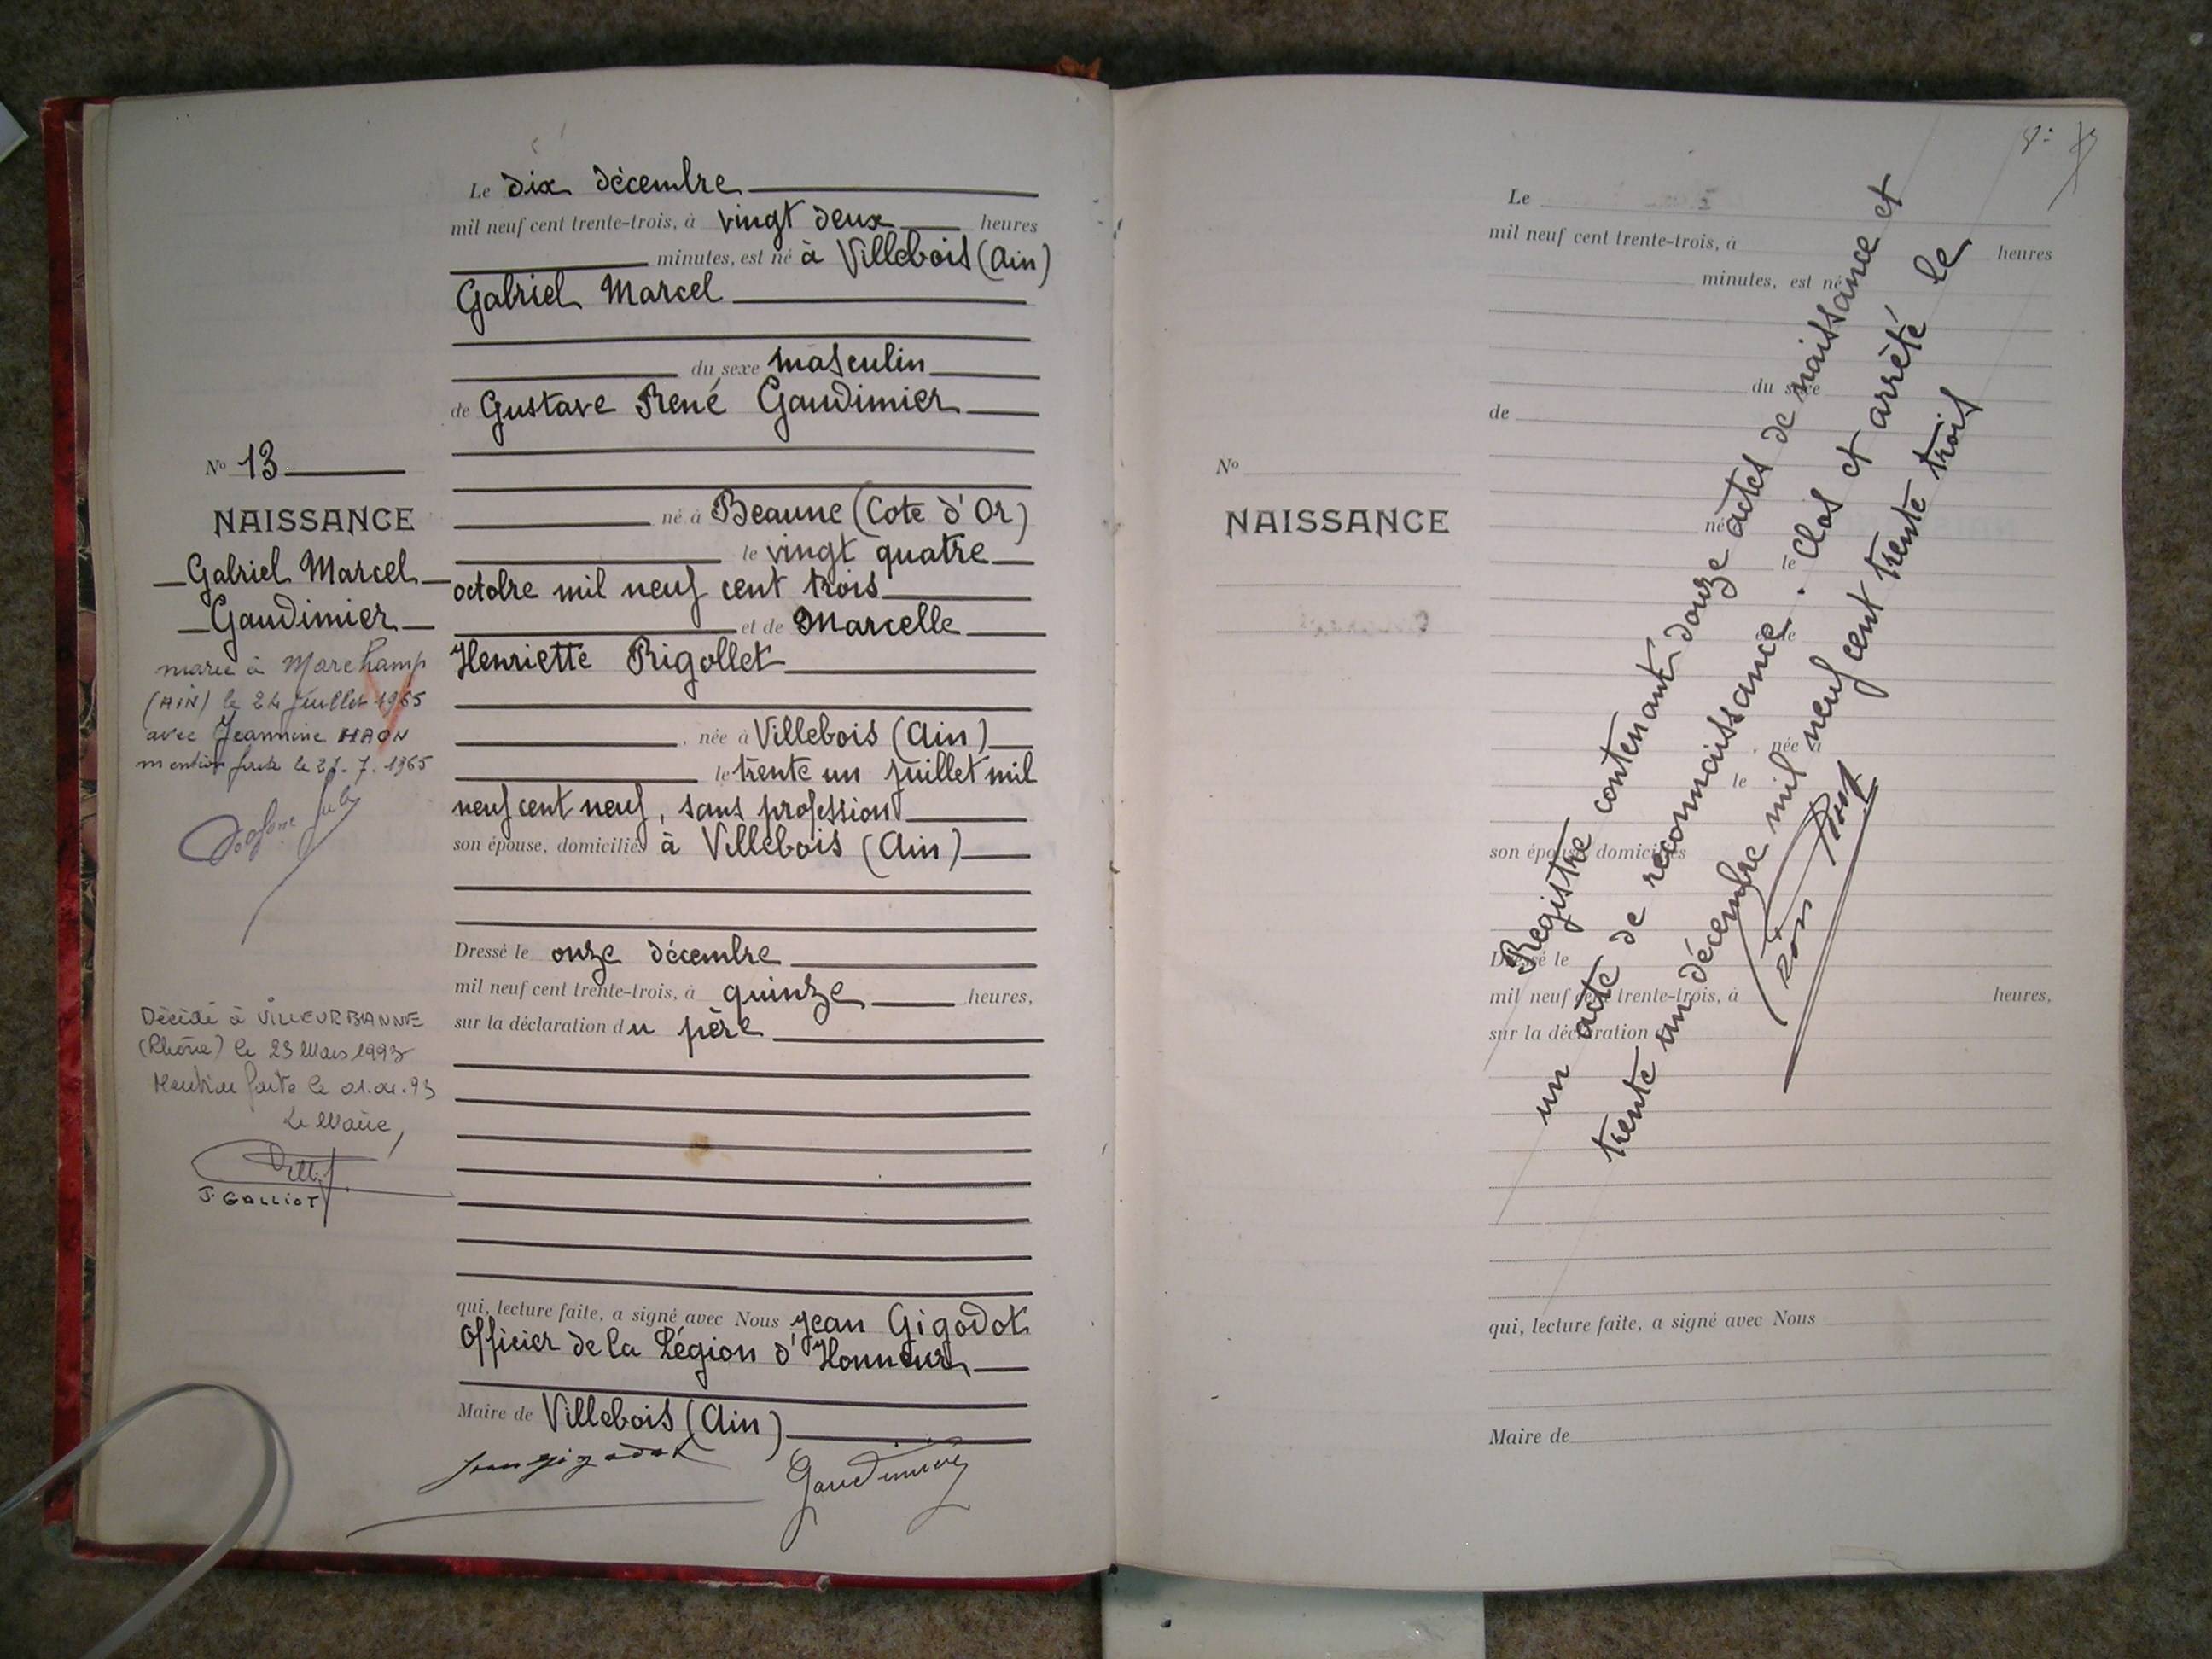 Le dix décembre
mil neuf cent trente-trois, à vingt deux heures
minutes, est né à Villebois (Ain)
Gabriel Marcel
du sexe masculin
de Gustave René Gaudimier
né à Beaune (Cote d'Or)
le vingt quatre
octobre mil neuf cent trois
et de Marcelle
Henriette Rigollet
, née à Villebois (Ain)
le trente un juillet mil
neuf cent neuf, sans profession
son épouse, domiciliés à Villebois (Ain)
Dressé le onze décembre
mil neuf cent trente-trois, à quinze heures,
sur la déclaration du père
qui, lecture faite, a signé avec Nous Jean Gigodot
Officier de la Légion d'Honneur
Maire de Villebois (Ain)
Jean Gigodot
Gaudimier
No 13
NAISSANCE
Gabriel Marcel
Gaudimier
marié à Marchamp
(AIN) le 24 Juillet 1965
avec Jeannine HAON
mention faite le 27.7.1965
Décédé à VILLEURBANNE
(Rhône) le 23 Mars 1993
Mention faite le 01.04.93
Le Maire,
J. GALLIOT
Le
mil neuf cent trente-trois, à heures
minutes, est né
du sexe
de
No
NAISSANCE
né
le
et de
, née à
le
son épouse, domiciliés
Dressé le
mil neuf cent trente-trois, à heures,
sur la déclaration
qui, lecture faite, a signé avec Nous
Maire de
Registre contenant douze actes de naissance et
un acte de reconnaissance. Clos et arrêté le
trente un décembre mil neuf cent trente trois